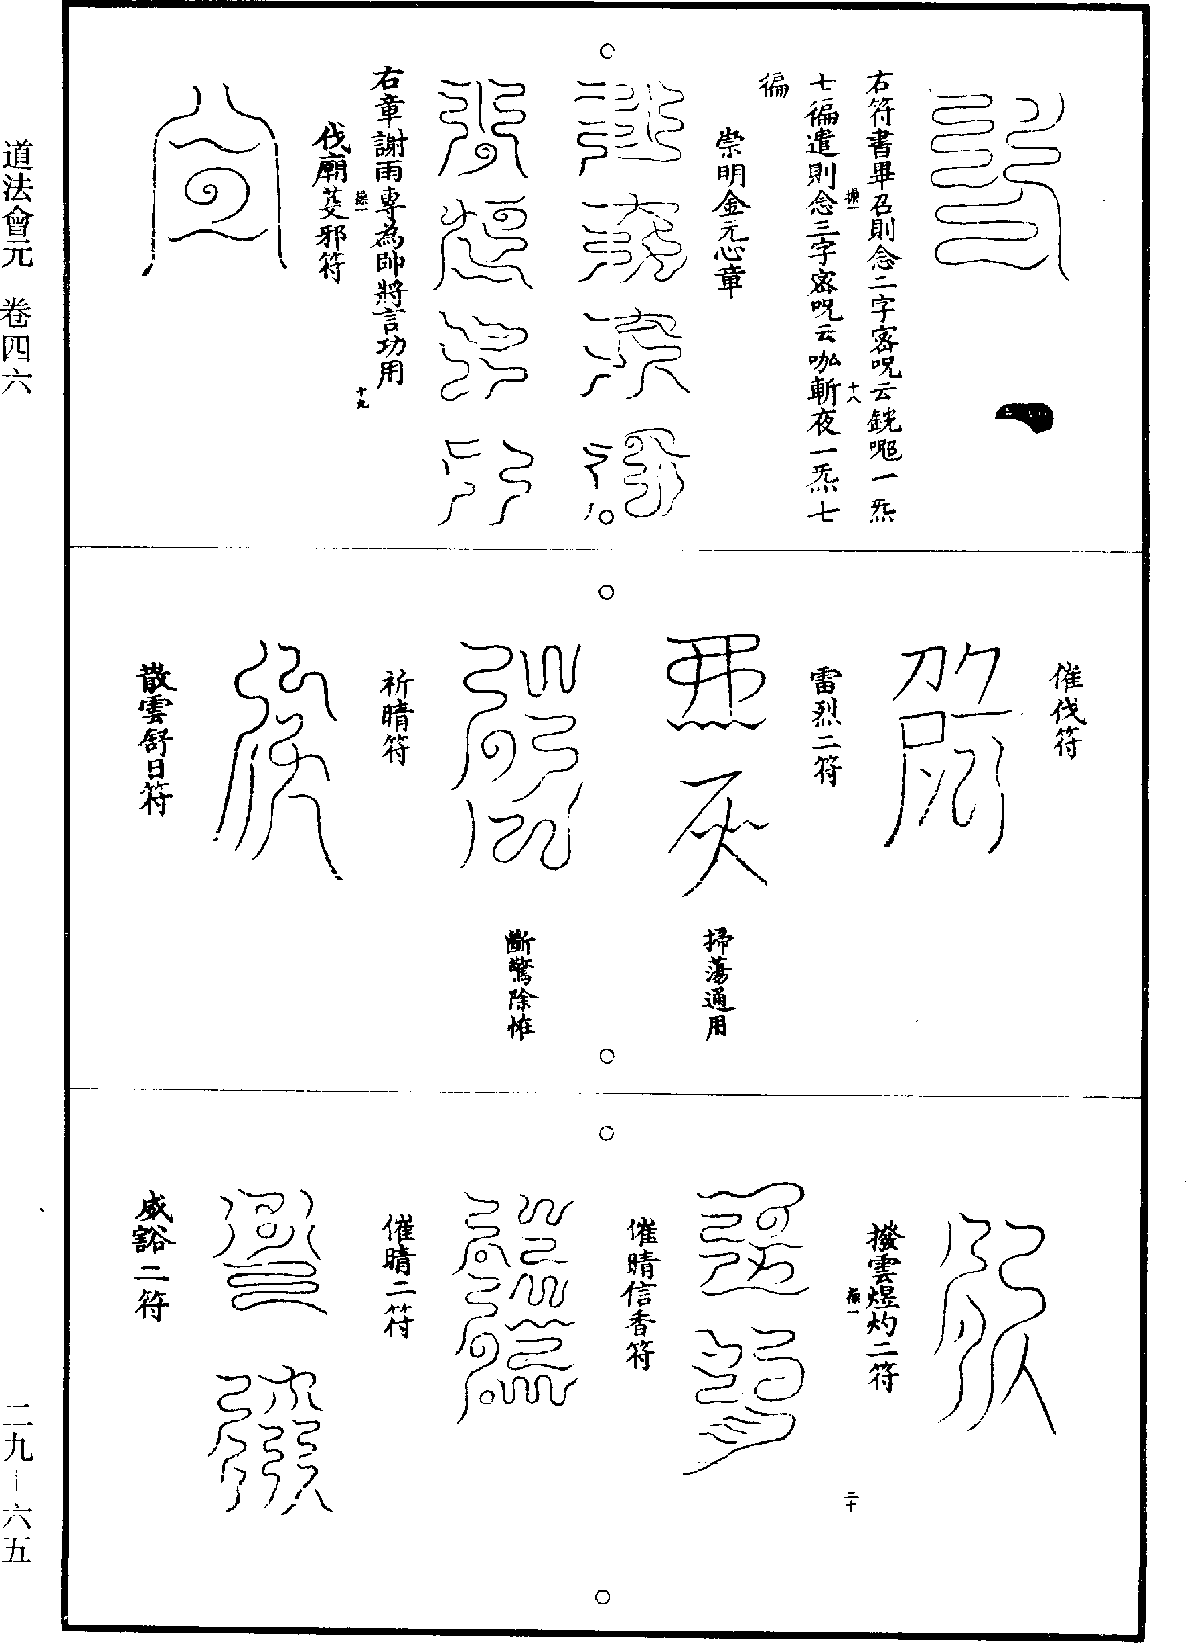 右符書畢召則念二字密呪云銧𡄸一炁
七徧遣則念三字密呪云咖斬夜一炁七
徧
十八
崇明金元心章
右章謝雨專為帥將言功用
伐廟芟邪符
十九
催伐符
雷烈二符
掃蕩通用
斷鶩除恠
祈晴符
散雲舒日符
撥雲煜灼二符
二十
催晴信香符
催晴二符
威豁二符
道法會元 卷四六
二九—六五